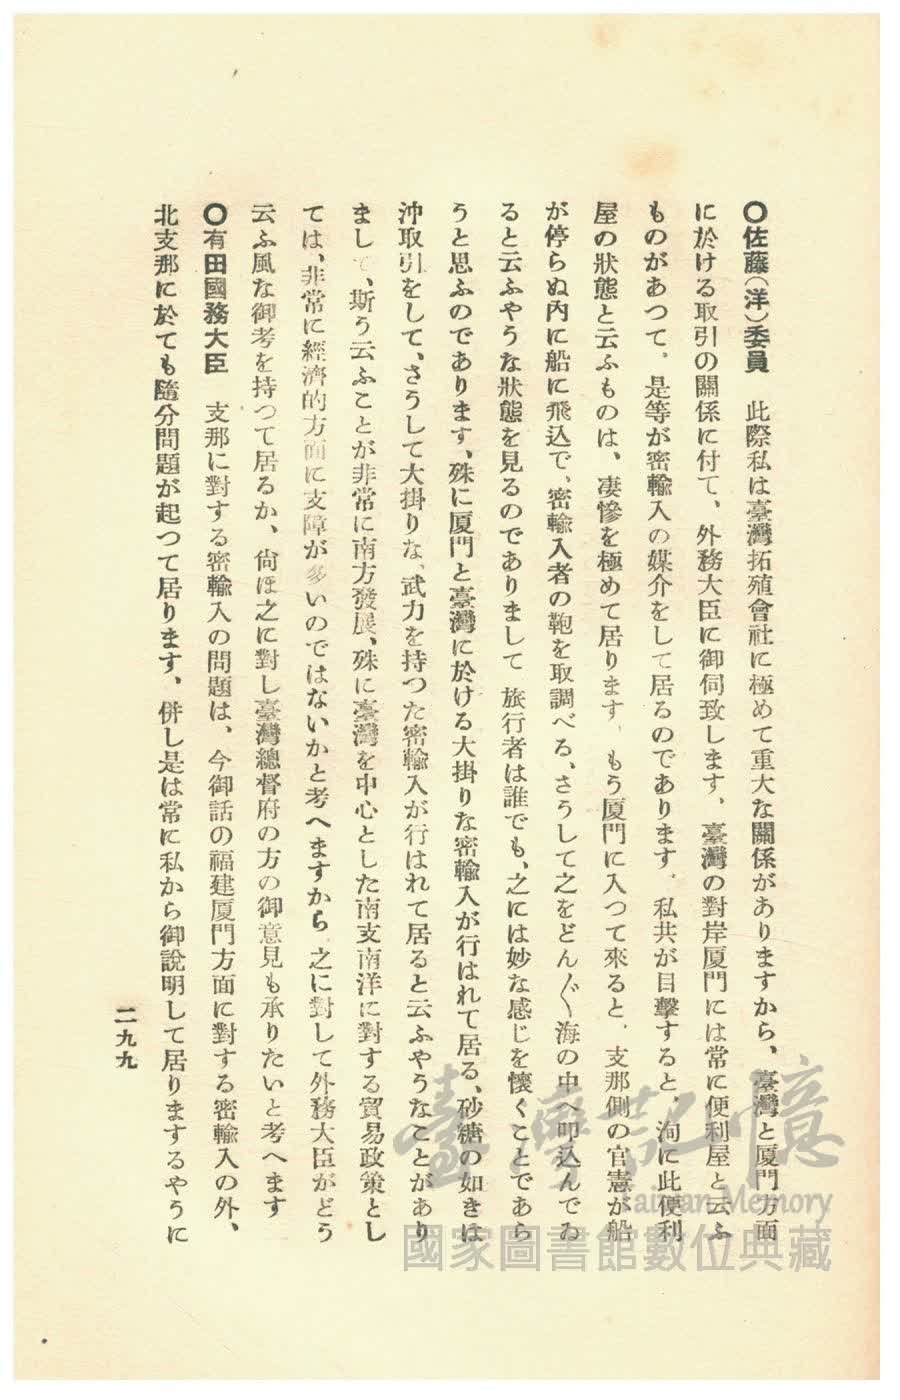 〇佐藤(洋)委員　此際私は臺灣拓殖會社に極めて重大な關係がありますから、臺灣と厦門方面
に於ける取引の關係に付て、外務大臣に御伺致します、臺灣の對岸厦門には常に便利屋と云ふ
ものがあつて、是等が密輸入の媒介をして居るのであります、私共が目擊すると、洵に此便利
屋の狀態と云ふものは、凄慘を極めて居ります、もう厦門に入つて來ると、支那側の官憲が船
が停らぬ內に船に飛込で、密輸入者の鞄を取調べる、さうして之をどん〲海の中へ叩込んでゐ
ると云ふやうな狀態を見るのでありまして　旅行者は誰でも、之には妙な感じを懷くことであら
うと思ふのであります、殊に厦門と臺灣に於ける大掛りな密輸入が行はれて居る、砂糖の如きは
沖取引をして、さうして大掛りな、武力を持つた密輸入が行はれて居ると云ふやうなことがあり
まして、斯う云ふことが非常に南方發展、殊に臺灣を中心とした南支南洋に對する貿易政策とし
ては、非常に經濟的方面に支障が多いのではないかと考へますから　之に對して外務大臣がどう
云ふ風な御考を持つて居るか、尙ほ之に對し臺灣總督府の方の御意見も承りたいと考へます
〇有田國務大臣　支那に對する密輸入の問題は、今御話の福建厦門方面に對する密輸入の外、
北支那に於ても隨分問題が起つて居ります、併し是は常に私から御說明して居りまするやうに
二九九
臺灣記憶
Taiwan Memory
國家圖書館數位典藏